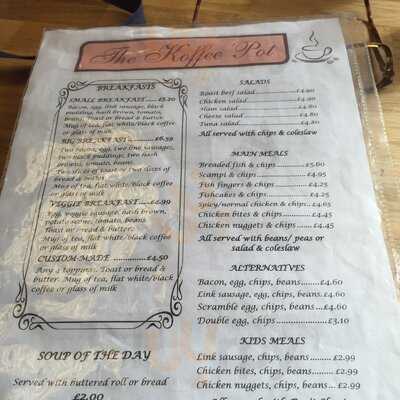 The Koffee Pot
BREAKFASTS
SMALL BREAKFAST.....£5.20
Bacon, egg, link sausage, black
pudding, hash brown, tomato,
beans, Toast or Bread & butter.
Mug of tea, flat white/black coffee
or glass of milk
BIG BREAKFAST........£6.59
Two bacon, egg, two link sausages,
two black puddings, two hash
browns, tomato, beans.
Two slices of toast or two slices of
bread & butter
Mug of tea, flat white/black coffee
or glass of milk
VEGGIE BREAKFAST.....£6.99
Egg, veggie sausage, hash brown,
potato scone, tomato, beans
Toast or bread & butter.
Mug of tea, flat white/black coffee
or glass of milk
CUSTOM MADE ............£4.50
Any 4 toppings. Toast or bread &
butter. Mug of tea, flat white/black
coffee or glass of milk
SOUP OF THE DAY
Served with buttered roll or bread
£2.00
SALADS
Roast beef salad..............£4.90
Chicken salad....................£4.90
Ham salad.........................£4.80
Cheese salad.....................£4.80
Tuna salad........................£4.80
All served with chips & coleslaw
MAIN MEALS
Breaded fish & chips.........£5.60
Scampi & chips..................£4.95
Fish fingers & chips...........£4.25
Fishcakes & chips..............£4.25
Spicy/normal chicken & chips..£4.65
Chicken bites & chips.........£4.45
Chicken nuggets & chips.....£4.45
All served with beans/ peas or
salad & coleslaw
ALTERNATIVES
Bacon, egg, chips, beans.......£4.60
Link sausage, egg, chips, beans.£4.60
Scramble egg, chips, beans...£4.60
Double egg, chips..............£3.10
KIDS MEALS
Link sausage, chips, beans........£2.99
Chicken bites, chips, beans.......£2.99
Chicken nuggets, chips, beans...£2.99